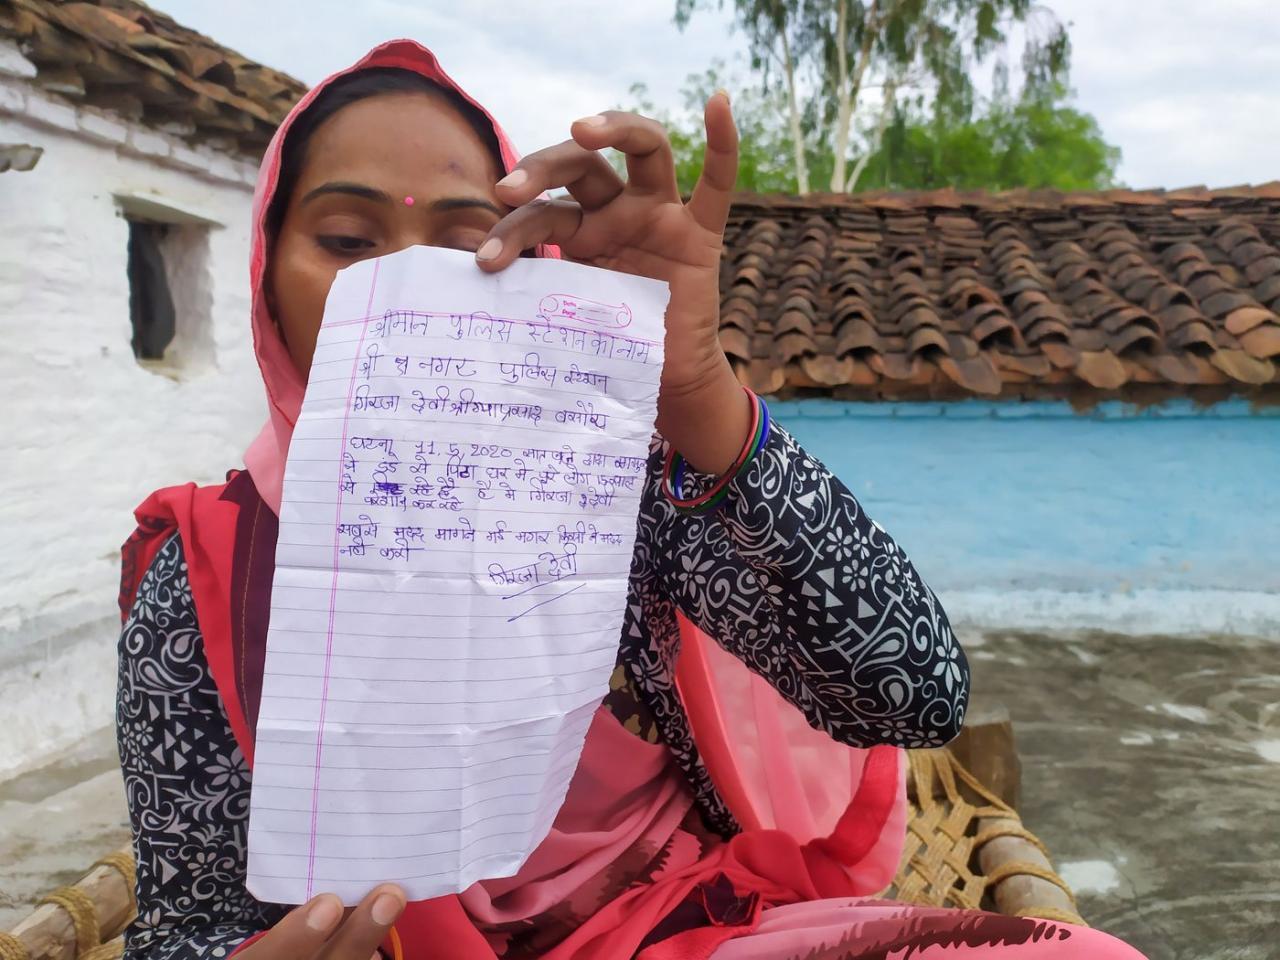 Date
Page
श्रीमान पुलिस स्टेशन का नाम
श्री नगर पुलिस स्टेशन
गिरजा देवी बसोर
घटना 11,5,2020 सात बजे
ने डंडे से पिटा घर में पूरे लोग 15 साल
से रहे है में गिरजा देवी
परेशान कर रहे
सबसे मदद मागने गई मगर किसी ने मदद
नही करी
गिरजा देवी